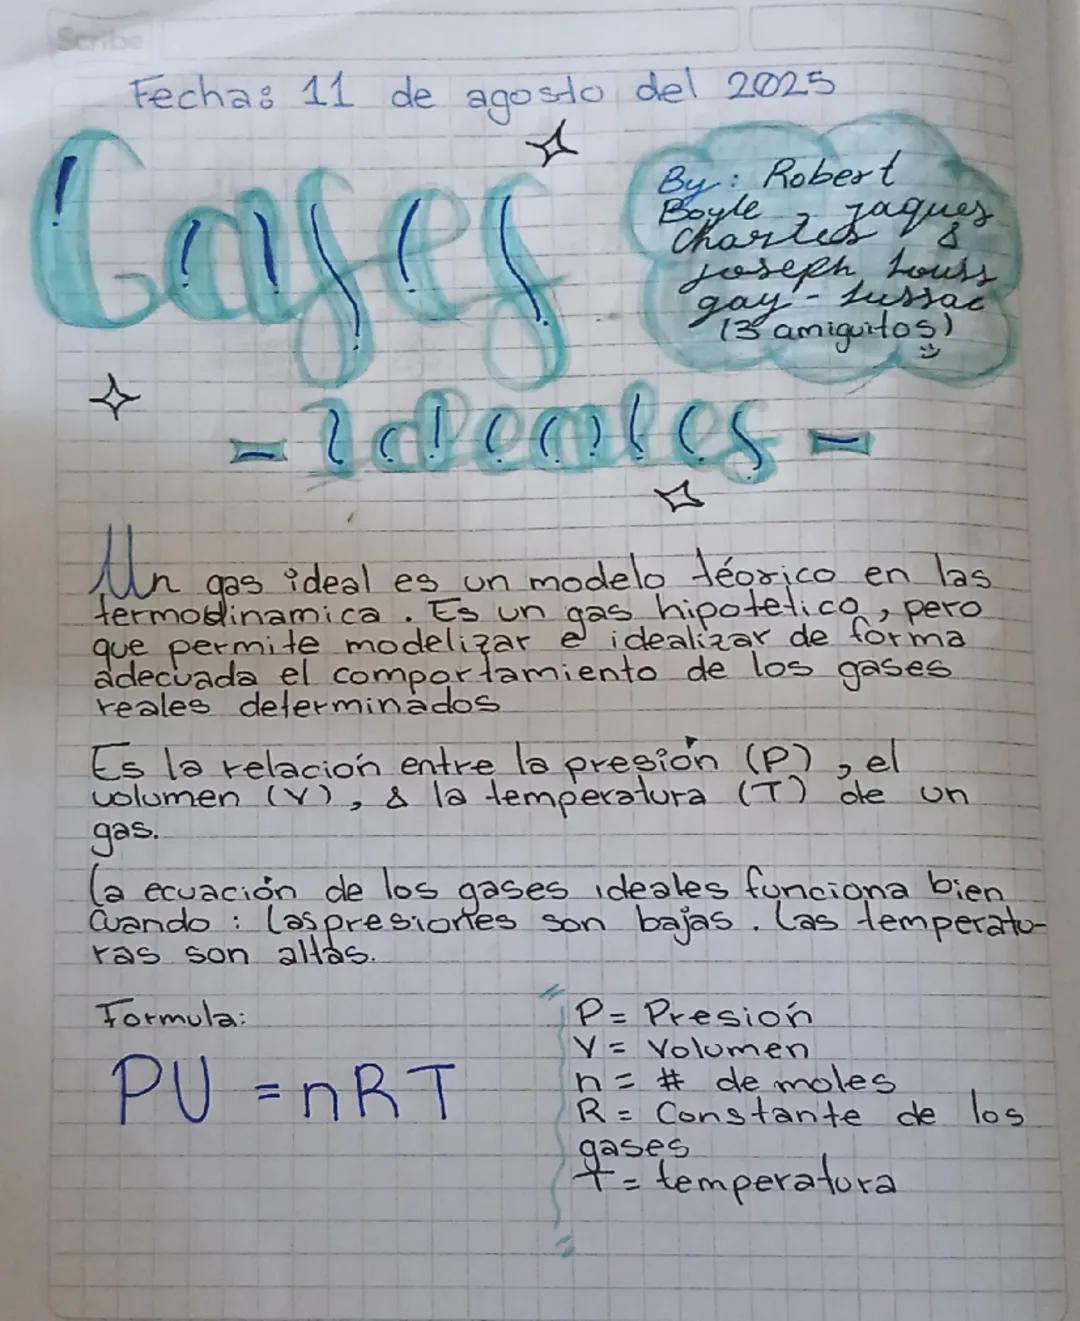 Scribe
Fecha: 11 de agosto del 2025
Gases
By: Robert
Boyle, Jaques
Charles &
Joseph Louss
gay-Lussac
(3 amiguitos)
- Ideales -
Un gas ideal es un modelo téorico en las
termodinamica. Es un gas hipotetico, pero
que permite modelizar e idealizar de forma
adecuada el comportamiento de los gases
reales determinados
Es la relación entre la presión (P), el
volumen (V), & la temperatura (T) de un
gas.
La ecuación de los gases ideales funciona bien
Cuando: Las presiones son bajas. Las temperatu-
ras son altas.
Formula:
PV = nRT
P= Presión
V= Volumen
n= # de moles
R= Constante de los
gases
T= temperatura